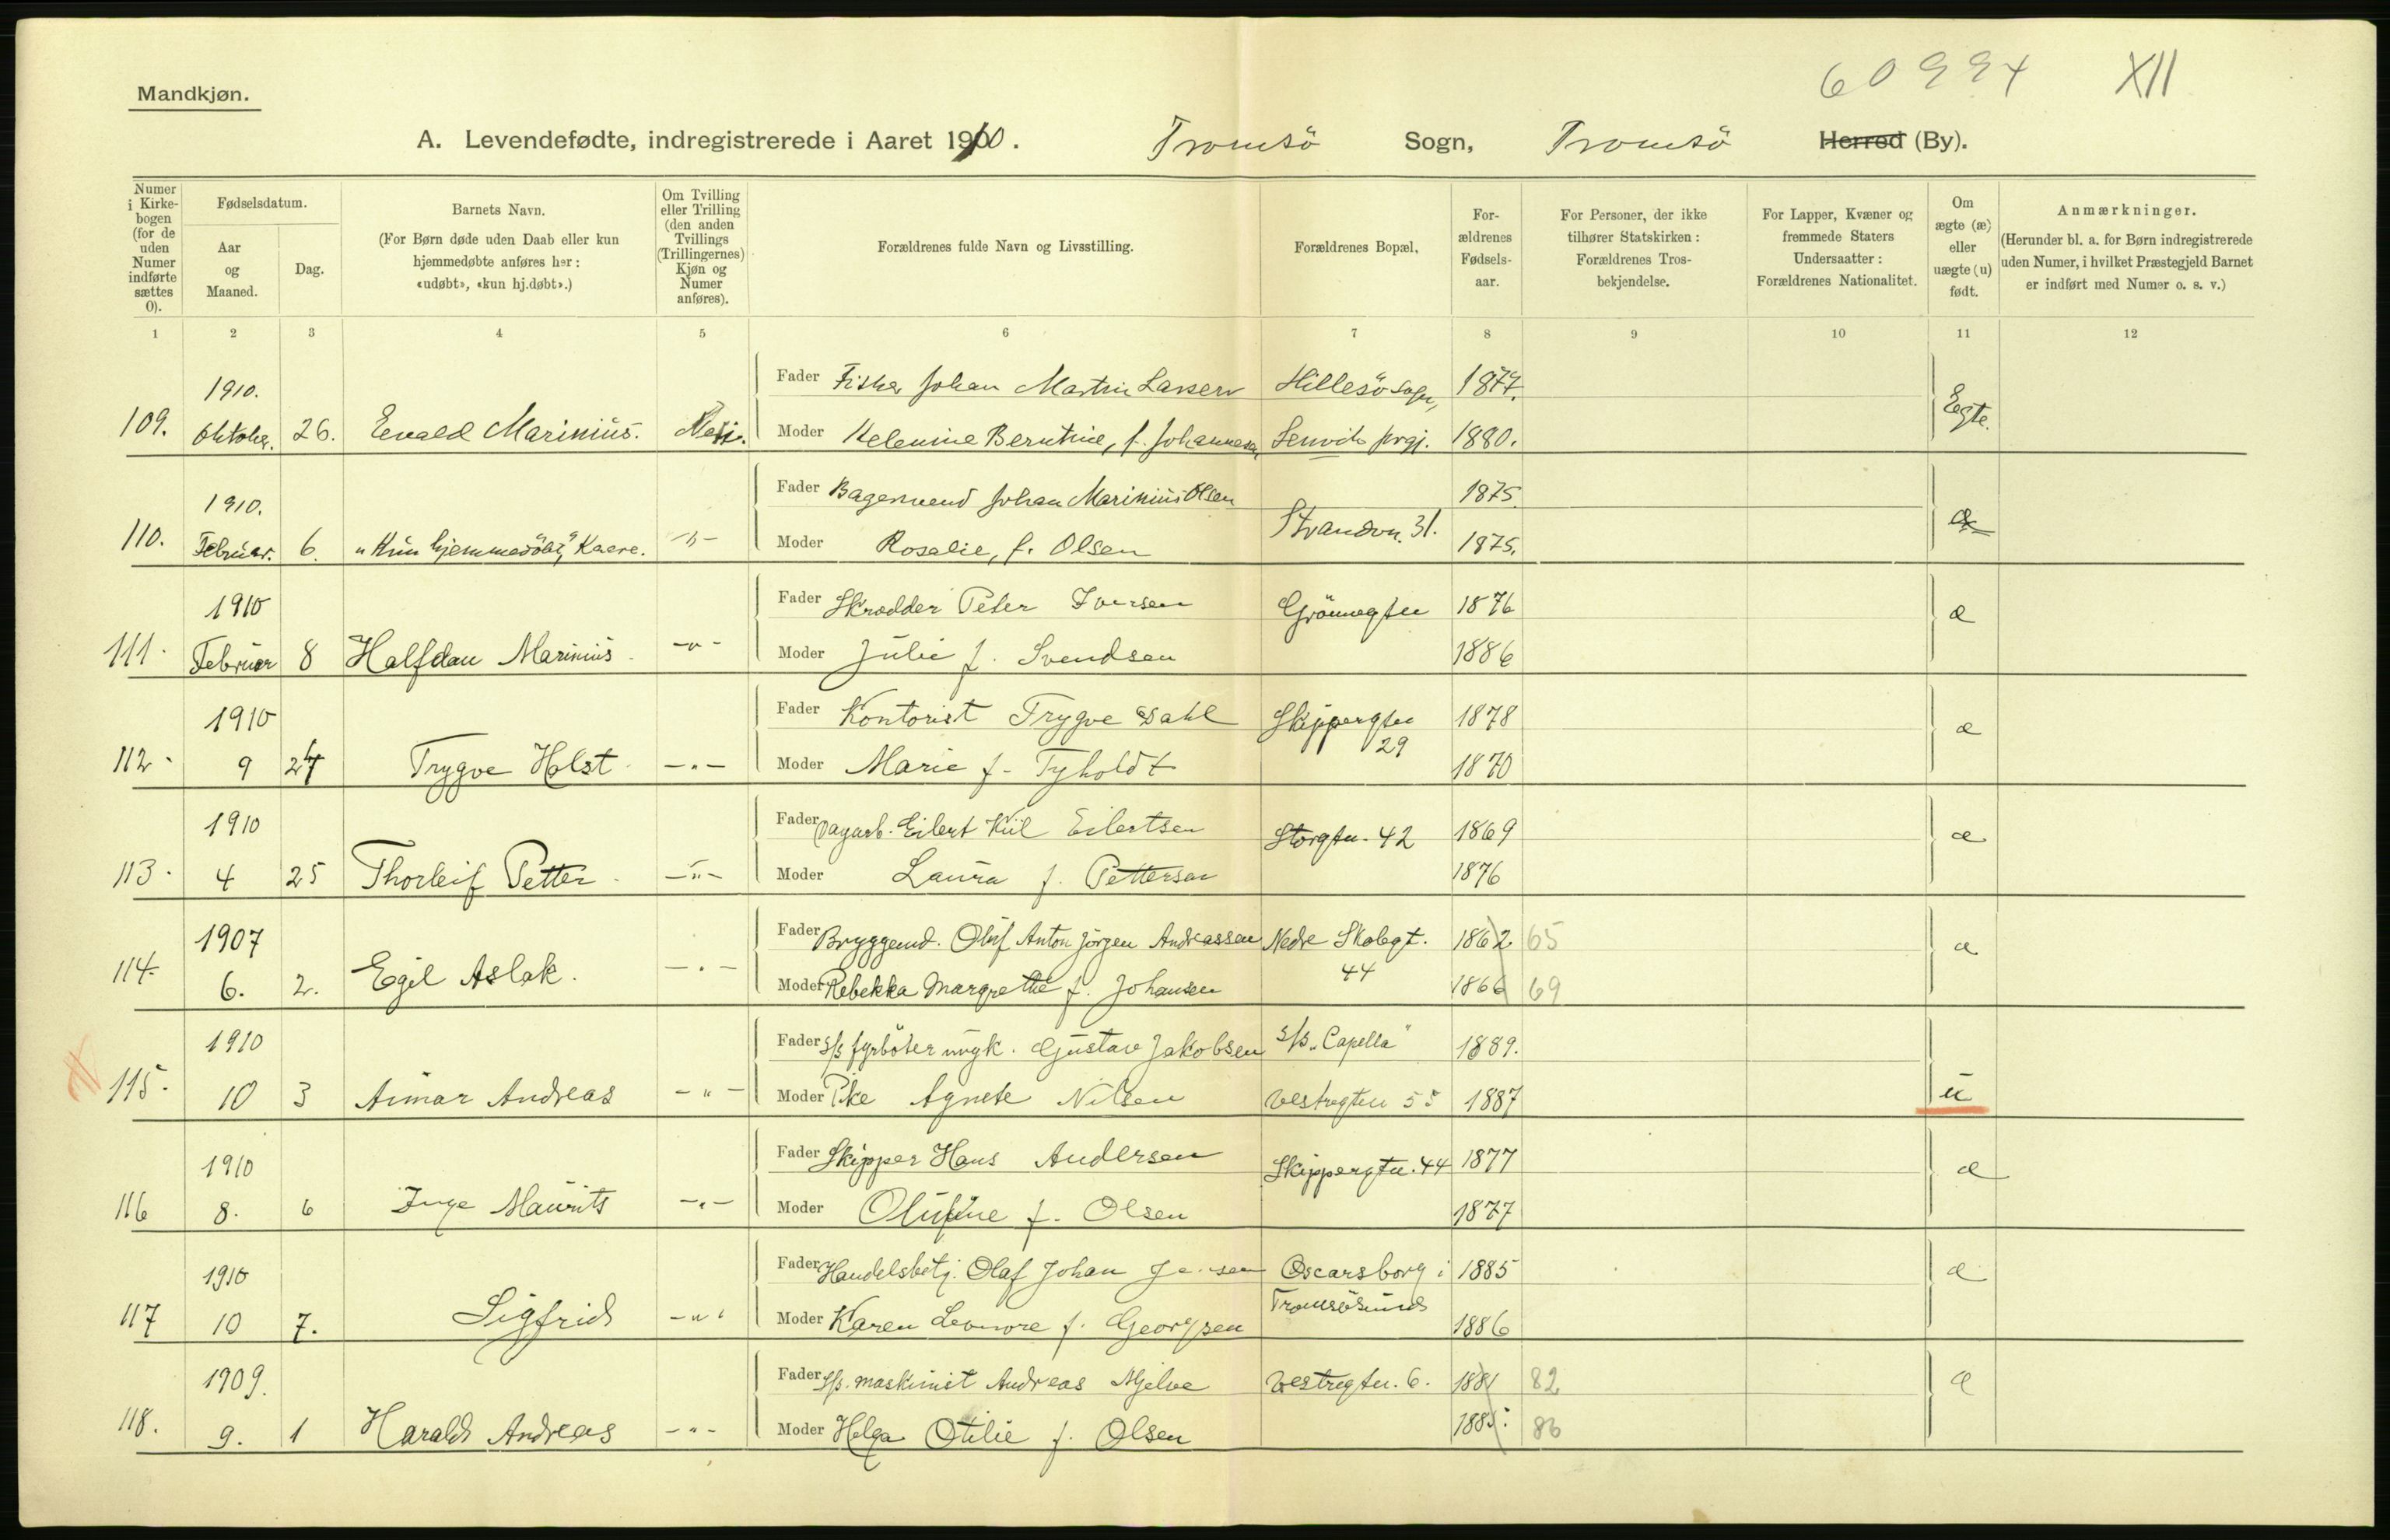 60994 XII
Mandkjøn.
A. Levendefødte, indregistrerede i Aaret 1910. Tromsö Sogn, Tromsö Herred (By).
Numer i Kirkebogen (for de uden Numer indførte sættes 0).
Fødselsdatum.
Aar og Maaned.
Dag.
Barnets Navn.
(For Børn døde uden Daab eller kun hjemmedøbte anføres her: «udøbt», «kun hj.døbt».)
Om Tvilling eller Trilling (den anden Tvillings (Trillingernes) Kjøn og Numer anføres).
Forældrenes fulde Navn og Livsstilling.
Forældrenes Bopæl,
Forældrenes Fødselsaar.
For Personer, der ikke tilhører Statskirken: Forældrenes Trosbekjendelse.
For Lapper, Kvæner og fremmede Staters Undersaatter: Forældrenes Nationalitet.
Om ægte (æ) eller uægte (u) født.
Anmærkninger.
(Herunder bl. a. for Børn indregistrerede uden Numer, i hvilket Præstegjeld Barnet er indført med Numer o. s. v.)
1 2 3 4 5 6 7 8 9 10 11 12
1910. Fader Fisker Johan Martin Larsen Hillesö Sogn, 1877.
109. Oktober. 26. Evald Marinius. Nei. Moder Helenine Berntine, f. Johannesen Lenvik prgj. 1880. Egte.
1910. Fader Bagersvend Johan Marinius Olsen 1875.
110. Februar. 6. "Kun hjemmedöbt," Kaare. -"- Moder Rosalie, f. Olsen Strandvn. 31. 1875. æ
1910 Fader Skrædder Peter Iversen Grönnegten 1876
111. Februar 8 Halfdan Marinius -"- Moder Julie f. Svendsen 1886 æ
1910 Fader Kontorist Trygve Dahl Skippergten 29 1878
112. 9 27 Trygve Holst -"- Moder Marie f. Tyholdt 1870 æ
1910 Fader Dagarb. Eilert Kiil Eilertsen Storgtn. 42 1869
113. 4 25 Thorleif Petter -"- Moder Laura f. Pettersen 1876 æ
1907 Fader Bryggemd. Oluf Anton Jörgen Andreassen Nedre Skolegt. 44 1862. 65
114. 6. 2. Egil Aslak. -"- Moder Rebekka Margrethe f. Johansen 1866 69 æ
1910 Fader s/s fyrböter ungk. Gustav Jakobsen s/s "Capella" 1889.
115. 10 3 Aimar Andreas -"- Moder Pike Agnete Nilsen Vestregten 55 1887 u
1910 Fader Skipper Hans Andersen Skippergtn. 44 1877
116 8. 6 Inge Maurits -"- Moder Olufine f. Olsen 1877 æ
1910 Fader Handelsbetj. Olaf Johan Jensen Oscarsborg i Tromsösund 1885
117 10 7. Sigfrid -"- Moder Karen Leonore f. Georgsen 1886 æ
1909. Fader s/s. maskinist Andreas Mjelve Vestregtn. 6. 1881 82
118. 9. 1 Harald Andreas -"- Moder Helga Otilie f. Olsen 1885. 86 æ